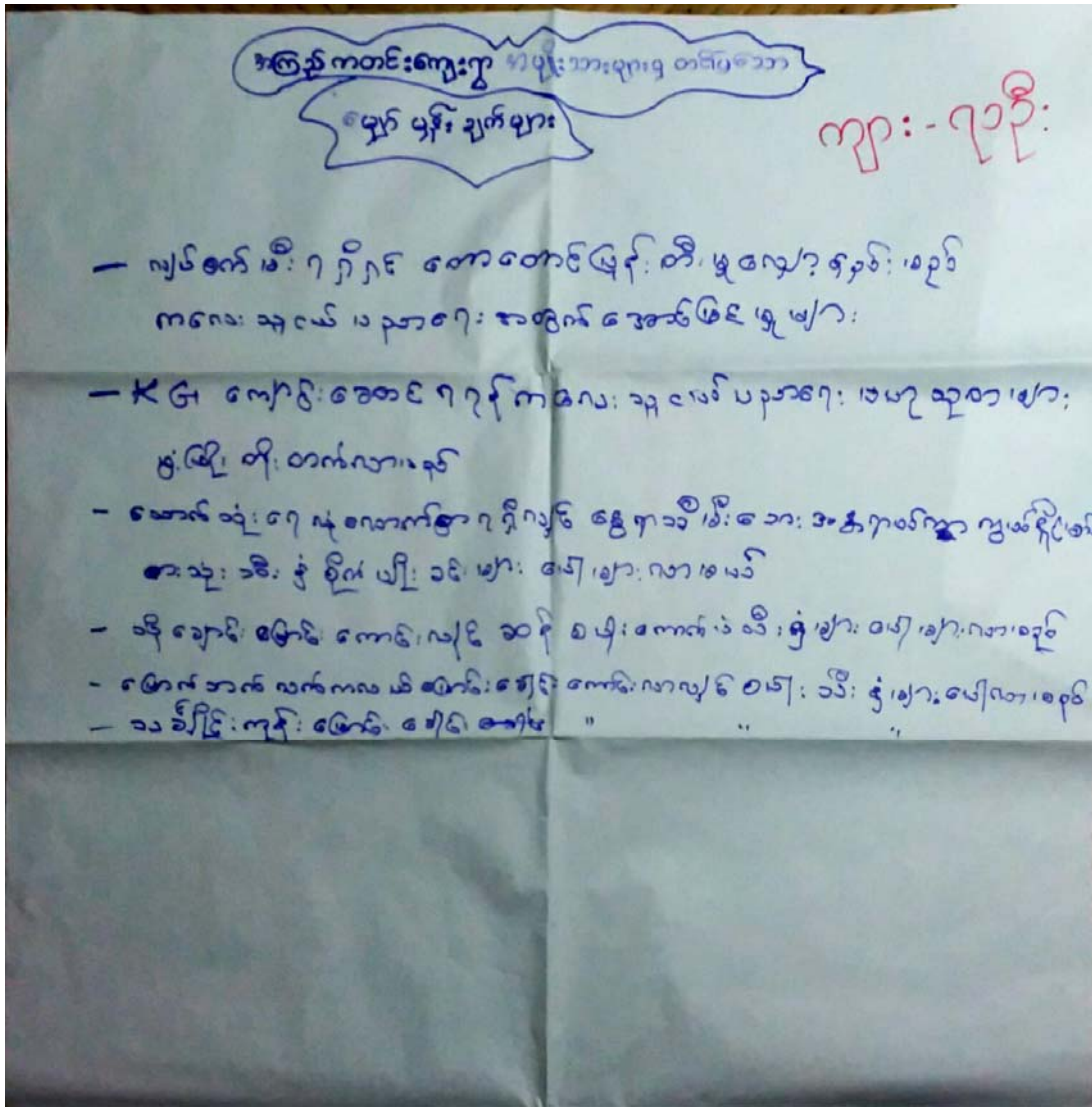 အကြည်ကတင်းကျေးရွာ အမျိုးသားများမှ တင်ပြသော
မျှော်မှန်းချက်များ
ကျား - ၇၁ဦး
- လျှပ်စစ်မီးရရှိရင် တောတောင်ပြုန်းတီးမှုလျော့နည်းမည်
ကလေးသူငယ်ပညာရေးအတွက်အောင်မြင်မှုများ
- KG ကျောင်းဆောင်ရရန်ကလေးသူငယ်ပညာရေးဗဟုသုတများ
ဖွံ့ဖြိုးတိုးတက်လာမည်
- သောက်သုံးရေလုံလောက်စွာရရှိလျှင် နွေရာသီမီးဘေးအန္တရာယ်က ကွယ်နိုင်မယ်
စားသုံးသီးနှံစိုက်ပျိုးခင်းများပေါများလာမယ်
- ဆိုချောင်းမြောင်းကောင်းလျှင် ဆန်စပါးကောက်ပဲသီးနှံများပေါများလာမည်
- မြောက်ဘက်လက်ကလယ်မြောင်းပေါင်ကောင်းလာလျှင်စပါးသီးနှံများပေါလာမည်
- သင်္ချိုင်းကုန်းမြောင်းပေါင် " " "